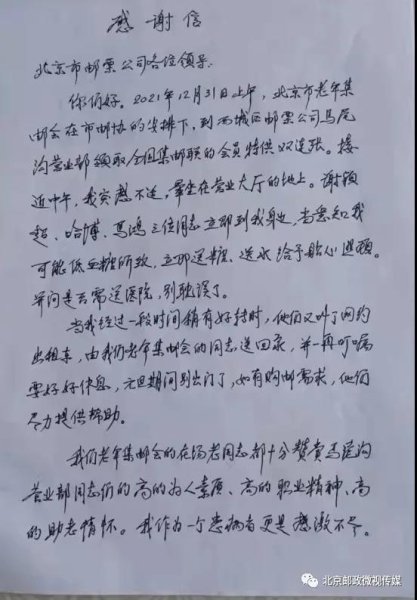 感谢信
北京市邮票公司各位领导:
你们好。2021年12月31日上午,北京市老年集
邮会在市邮协的安排下,到西城区邮票公司马尾
沟营业部领取全国集邮联的会员特供双连张。接
近中午,我突感不适,晕坐在营业大厅的地上。谢颖
超、哈博、马鸿三位同志立即到我身边,当感知我
可能低血糖所致,立即送糖、送水给予贴心照顾。
并问是否需送医院,别耽误了。
当我经过一段时间稍有好转时,他们又叫了网约
出租车,由我们老年集邮会的同志送回家,并一再叮嘱
要好好休息,元旦期间别出门了,如有购邮需求,他们
尽力提供帮助。
我们老年集邮会的在场老同志都十分赞赏马尾沟
营业部同志们的高的为人素质、高的职业精神、高
的助老情怀。我作为一个患病者更是感激不尽。
北京邮政微视传媒